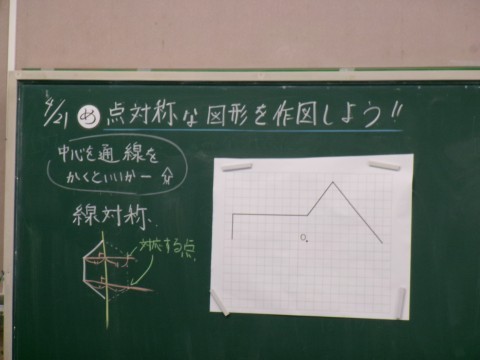 4/21 め 点対称な図形を作図しよう!!
中心を通 線を
かくといいかー
線対称
対応する点
O